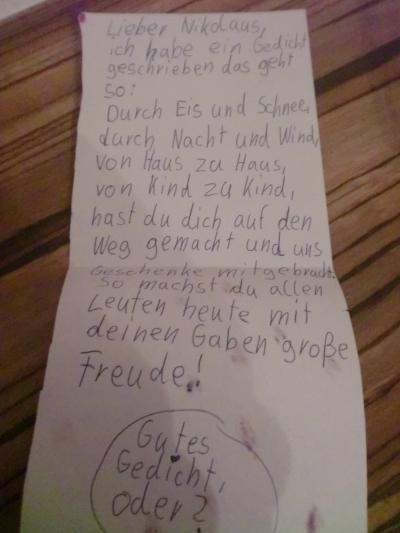 Lieber Nikolaus,
ich habe ein Gedicht
geschrieben das geht
so:
Durch Eis und Schnee,
durch Nacht und Wind,
von Haus zu Haus,
von Kind zu Kind,
hast du dich auf den
Weg gemacht und uns
Geschenke mitgebracht.
So machst du allen
Leuten heute mit
deinen Gaben große
Freude!
Gutes
Gedicht,
oder?